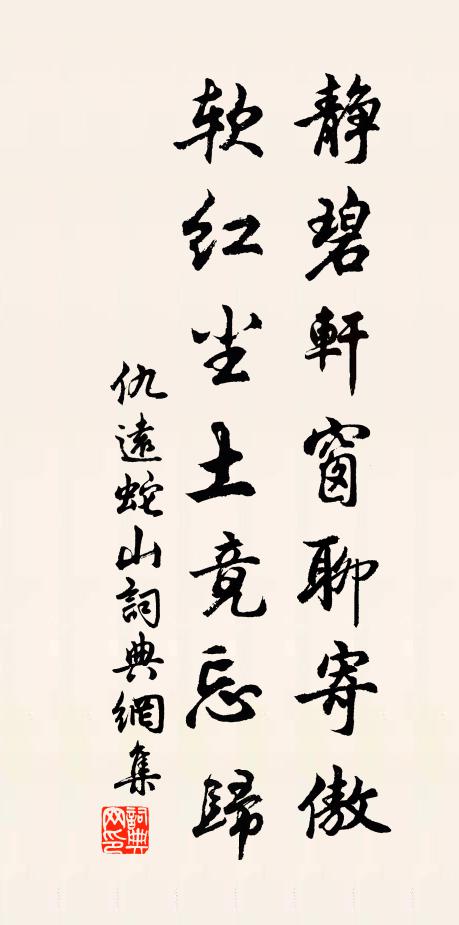 静碧軒窗聊寄傲
软红尘土竟忘歸
仇遠蛇山詞典網集
詞典网印